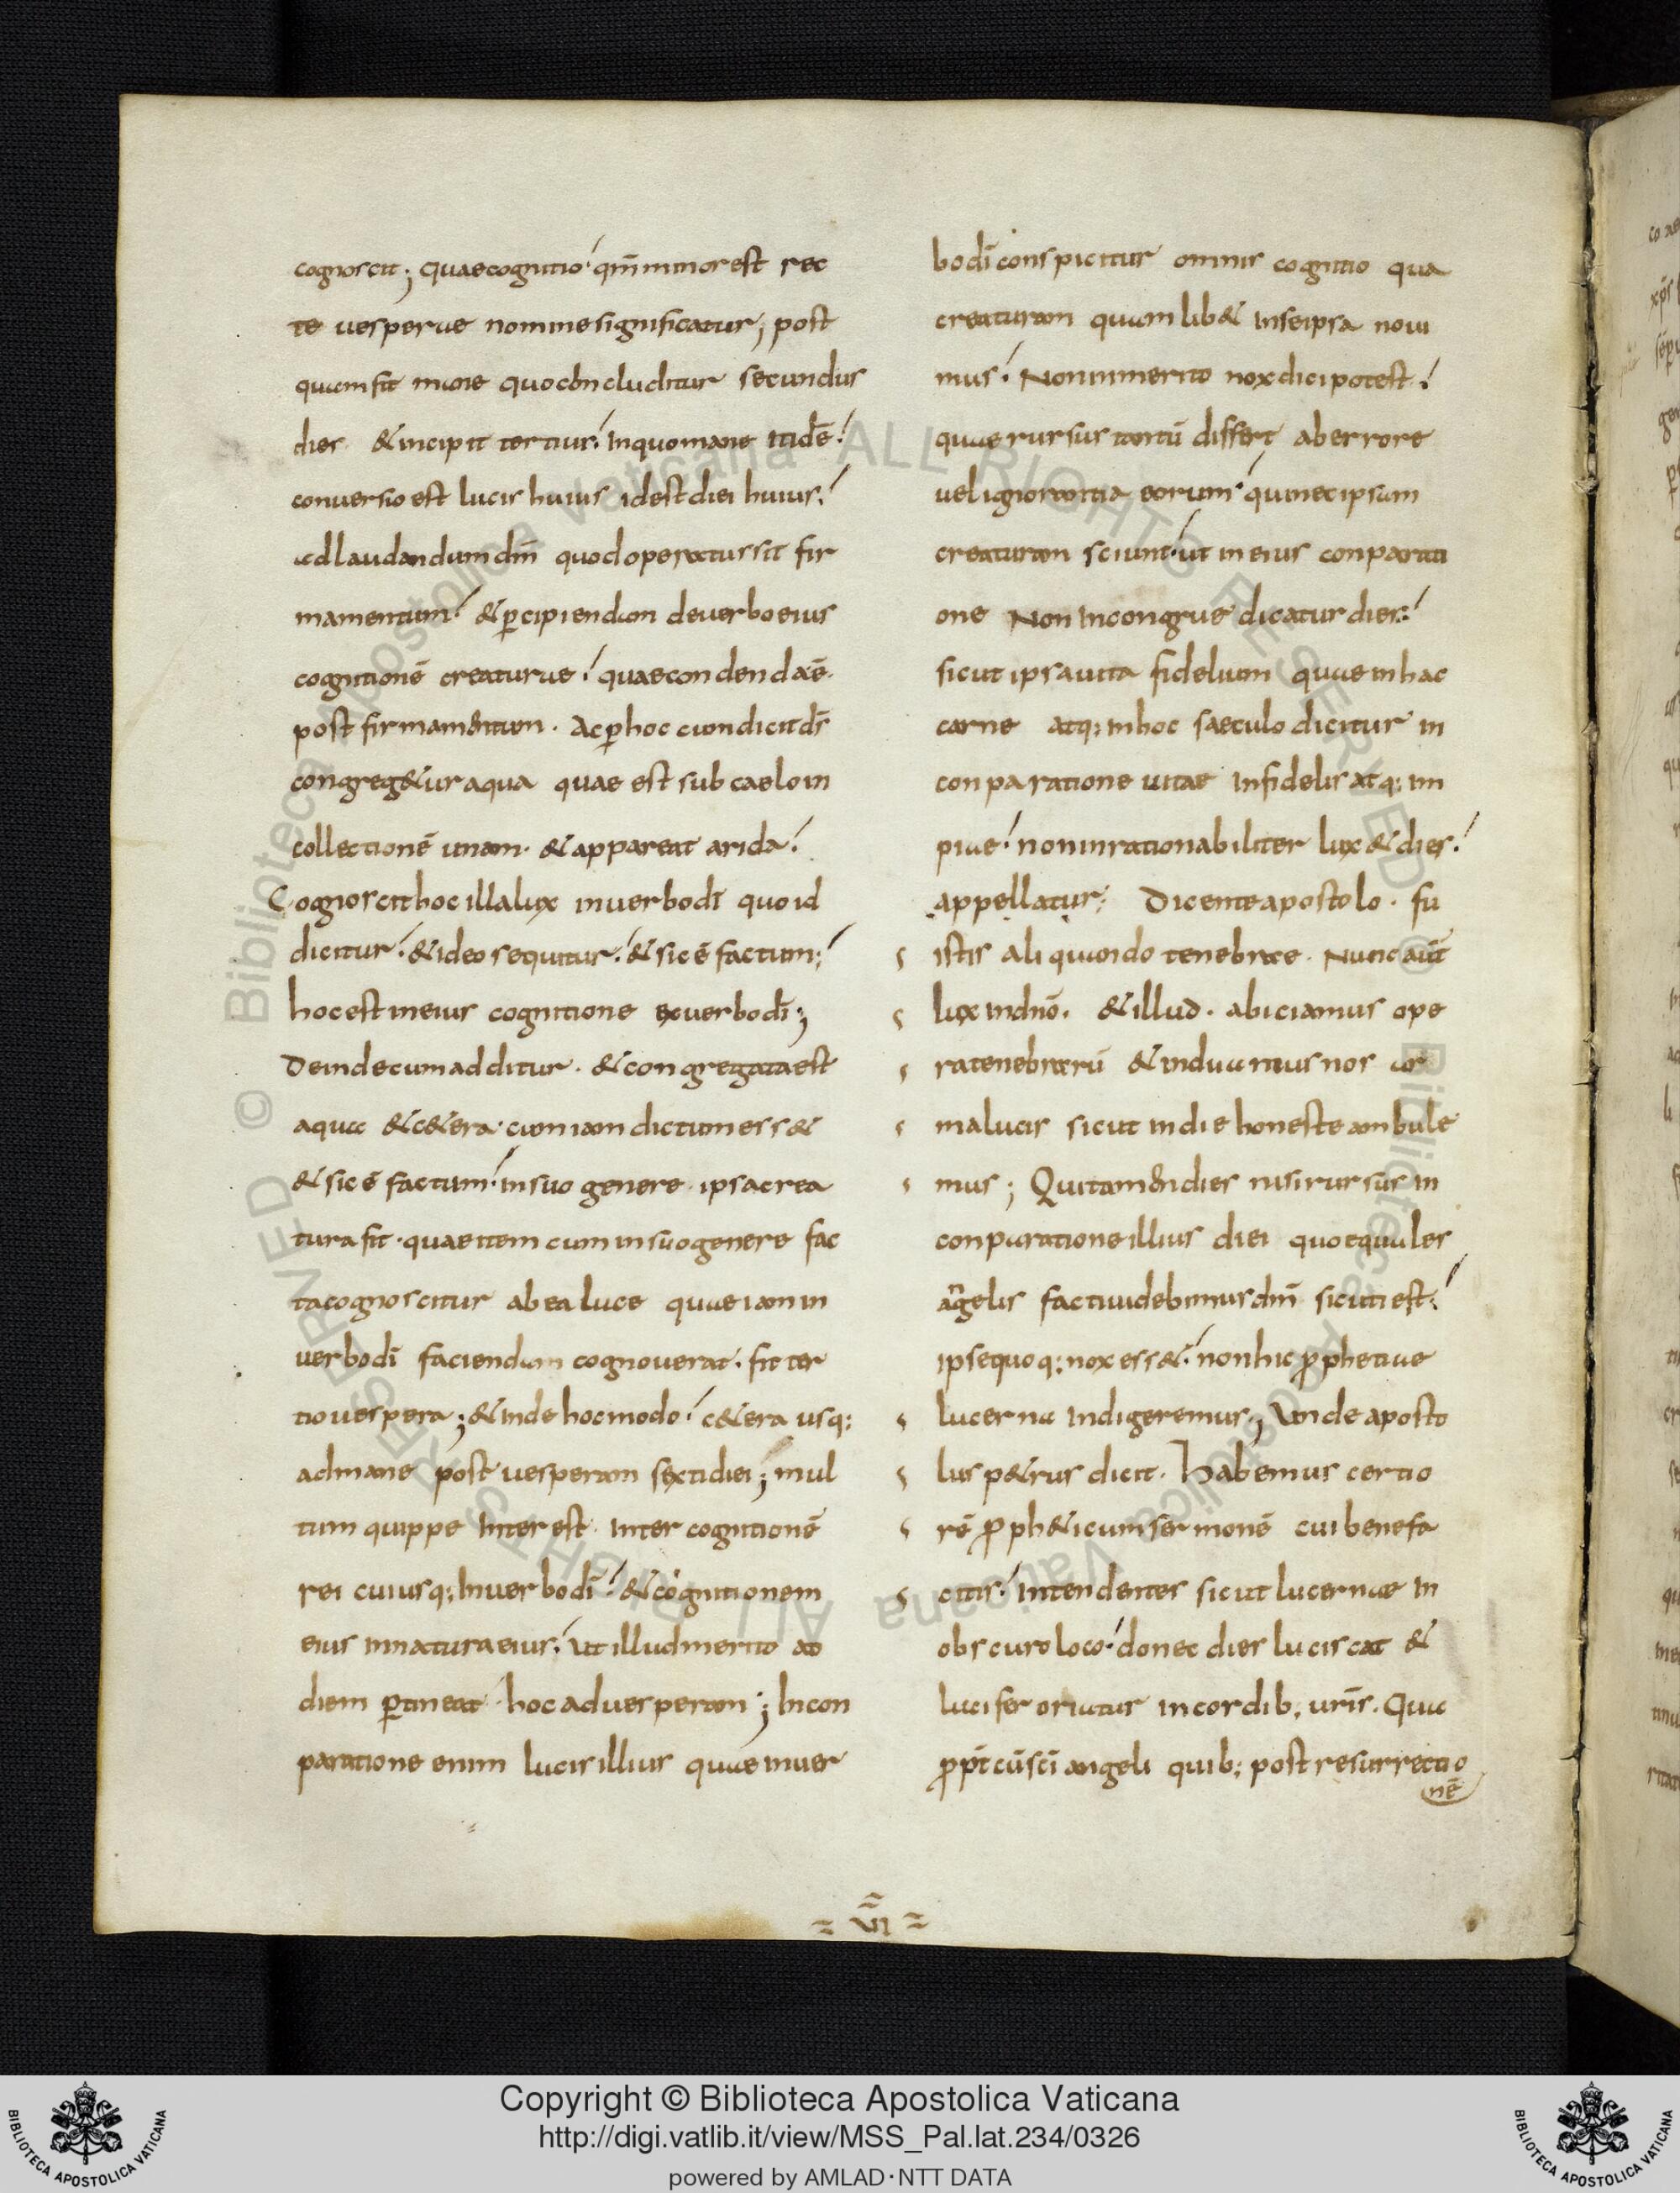 cognoscit; quae cognitio qm̄ minor est rec
te uesperae nomine significatur; post
quam fit mane quo concluditur secundus
dies & incipit tertius. In quo mane itidē
conuersio est lucis huius idest diei huius.
ad laudandum dm̄ quod operatus sit fir
mamentum. & p̄cipiendam de uerbo eius
cognitionē creaturae. quae condenda ē.
post firmamentum. Ac p̄ hoc cum dicit ds̄
congreg&ur aqua quae est sub caelo in
collectionē unam. & appareat arida.
Cognoscit hoc illa lux in uerbo dī quo id
dicitur. & ideo sequitur. & sic ē factum;
hoc est in eius cognitione ex uerbo dī;
Deinde cum additur. & congregata est
aqua & c&era. cum iam dictum ess&
& sic ē factum. in suo genere ipsa crea
tura fit. quae item cum in suo genere fac
ta cognoscitur ab ea luce quae iam in
uerbo dī faciendam cognouerat. fit ter
tio uespera; & inde hoc modo c&era usq;
ad mane post uesperam sexti diei; mul
tum quippe interest inter cognitionē
rei cuiusq; in uerbo dī. & cognitionem
eius in natura eius. ut illud merito ad
diem p̄tineat hoc ad uesperam; In con
paratione enim lucis illius quae in uer
bo dī conspicitur omnis cognitio qua
creaturam quamlib& in se ipsa noui
mus. Non inmerito nox dici potest.
quae rursus tantū differt ab errore
uel ignorantia eorum qui nec ipsam
creaturam sciunt. ut in eius conparati
one Non incongrue dicatur dies.
sicut ipsa uita fidelium quae in hac
carne atq; in hoc saeculo dicitur in
conparatione uitae infidelis atq; im
piae. non inrationabiliter lux & dies.
appellatur. Dicente apostolo. fu
istis aliquando tenebrae. Nunc aūt
lux in dn̄o. & illud. abiciamus ope
ra tenebrarū & induamus nos ar
ma lucis sicut in die honeste ambule
mus; Qui tamen dies nisi rursus in
conparatione illius diei quo equales
angelis facti uidebimus dm̄ sicuti est.
ipse quoq; nox ess&. non hic p̄phetiae
lucerna indigeremur; Unde aposto
lus p&rus dicit. Habemus certio
rē p̄ph&icum sermonē cui benefa
citis. intendentes sicut lucernae in
obscuro loco. donec dies luciscat &
lucifer oriatur in cordib; uris̄. Qua
p̄pt̄ cū scī angeli quib; post resurrectio
nē
= VI =
Copyright © Biblioteca Apostolica Vaticana
http://digi.vatlib.it/view/MSS_Pal.lat.234/0326
powered by AMLAD·NTT DATA
BIBLIOTECA APOSTOLICA VATICANA
BIBLIOTECA APOSTOLICA VATICANA